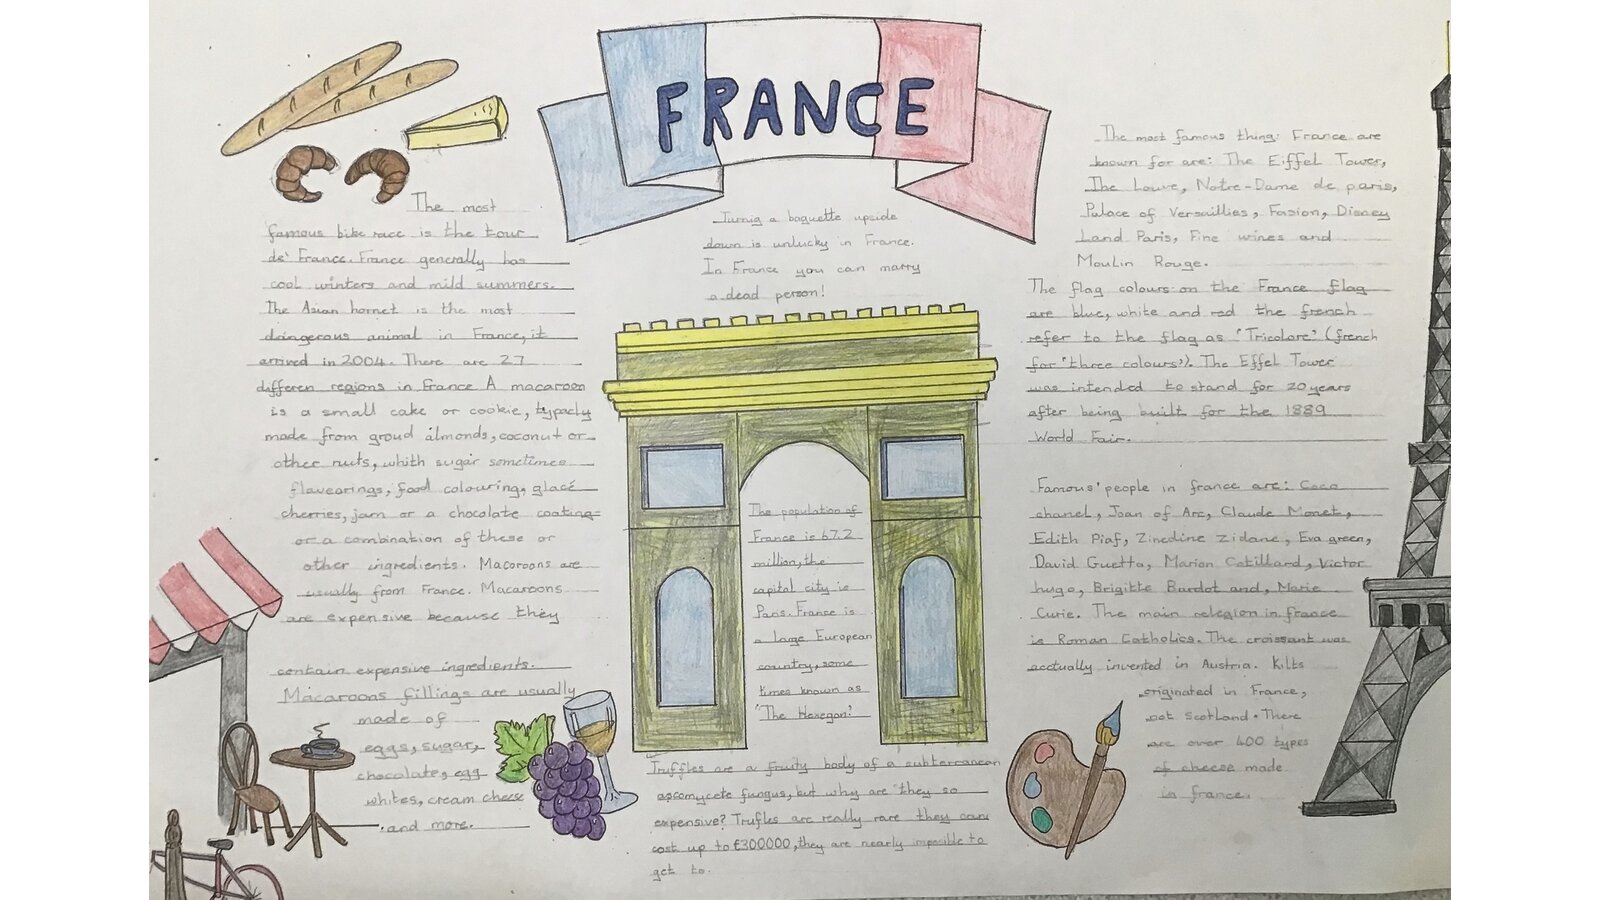 FRANCE
The most
famous bike race is the tour
de' France. France generally has
cool winters and mild summers.
The Asian hornet is the most
dangerous animal in France, it
arrived in 2004. There are 27
differen regions in France A macaroon
is a small cake or cookie, typacly
made from groud almonds, coconut or
other nuts, whith sugar sometimes
flaveorings, food colouring, glacé
cherries, jam or a chocolate coating
or a combination of these or
other ingredients. Macoroons are
usually from France. Macaroons
are expensive because they
contain expensive ingredients.
Macaroons fillings are usually
made of
eggs, sugar,
chocolate, egg
whites, cream cheese
and more.
Turnig a baguette upside
down is unlucky in France.
In France you can marry
a dead person!
The population of
France is 67.2
million, the
capital city is
Paris. France is
a large European
country, some
times known as
'The Hexegon'
Truffles are a fruity body of a subterranean
ascomycete fungus, but why are they so
expensive? Trufles are really rare they can
cost up to €300000, they are nearly imposible to
get to.
The most famous thing: France are
known for are: The Eiffel Tower,
The Louve, Notre-Dame de paris,
Palace of Versaillies, Fasion, Disney
Land Paris, Fine wines and
Moulin Rouge.
The flag colours on the France flag
are blue, white and red the french
refer to the flag as 'Tricolore' (french
for 'three colours'). The Effel Tower
was intended to stand for 20 years
after being built for the 1889
World Fair.
Famous' people in france are: Coco
chanel, Joan of Arc, Claude Monet,
Edith Piaf, Zinedine Zidane, Eva green,
David Guetta, Marion Cotillard, Victor
hugo, Brigitte Bardot and, Marie
Curie. The main relegion in france
is Roman Catholics. The croissant was
acctually invented in Austria. Kilts
originated in France,
not Scotland. There
are over 400 types
of cheese made
in france.